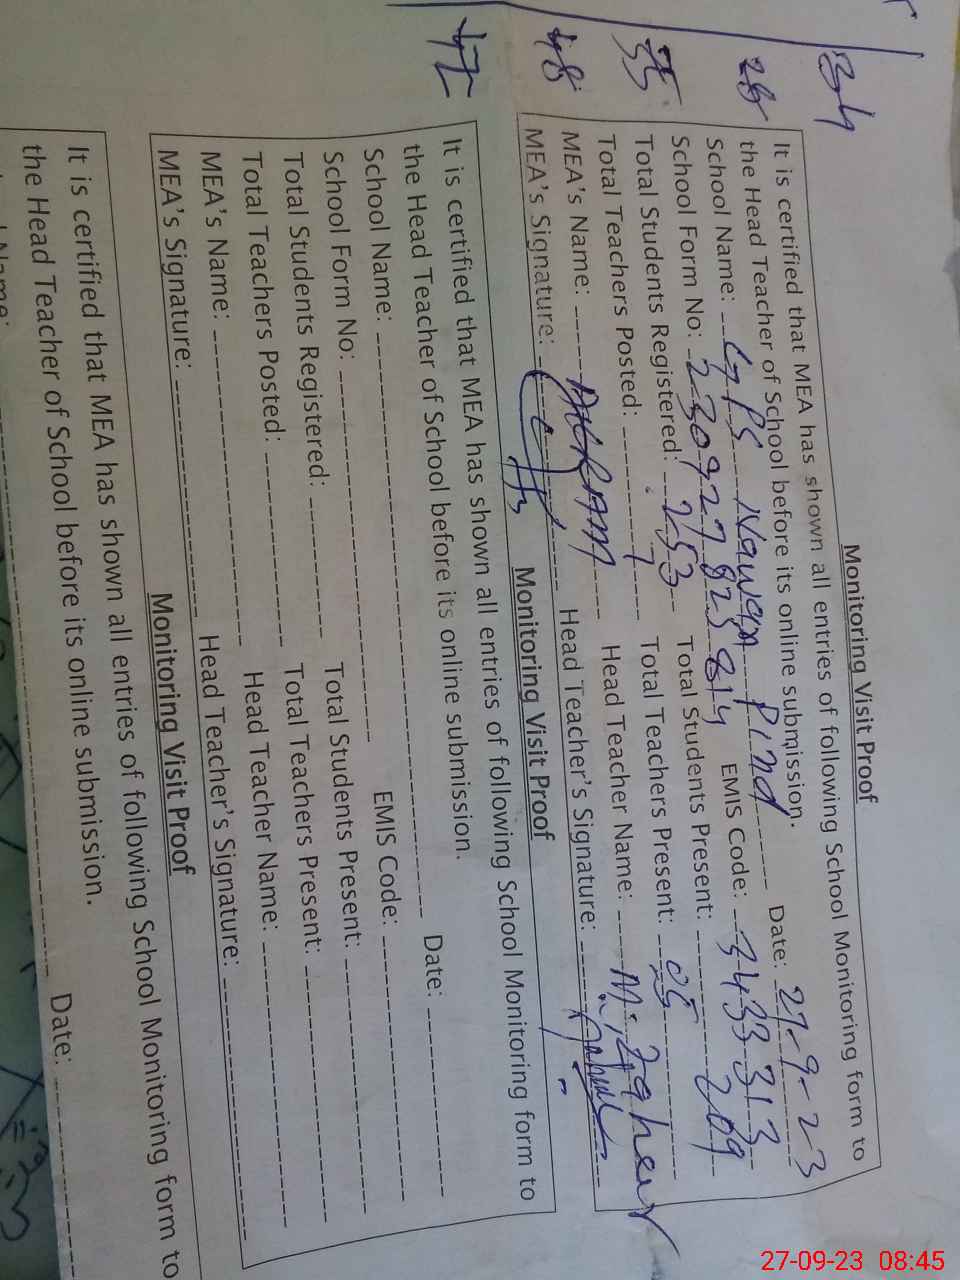 34
28
35
48
42
Monitoring Visit Proof
It is certified that MEA has shown all entries of following School Monitoring form to
the Head Teacher of School before its online submission.
School Name: GPS Nawan Pind Date: 27-9-23
School Form No: 230927823814 EMIS Code: 34333313
Total Students Registered: 253 Total Students Present: 209
Total Teachers Posted: 7 Total Teachers Present: 05
MEA's Name: Head Teacher Name: M. Zaheer
MEA's Signature: Head Teacher's Signature:
Monitoring Visit Proof
It is certified that MEA has shown all entries of following School Monitoring form to
the Head Teacher of School before its online submission.
School Name: Date:
School Form No: EMIS Code:
Total Students Registered: Total Students Present:
Total Teachers Posted: Total Teachers Present:
MEA's Name: Head Teacher Name:
MEA's Signature: Head Teacher's Signature:
Monitoring Visit Proof
It is certified that MEA has shown all entries of following School Monitoring form to
the Head Teacher of School before its online submission.
Date:
27-09-23 08:45